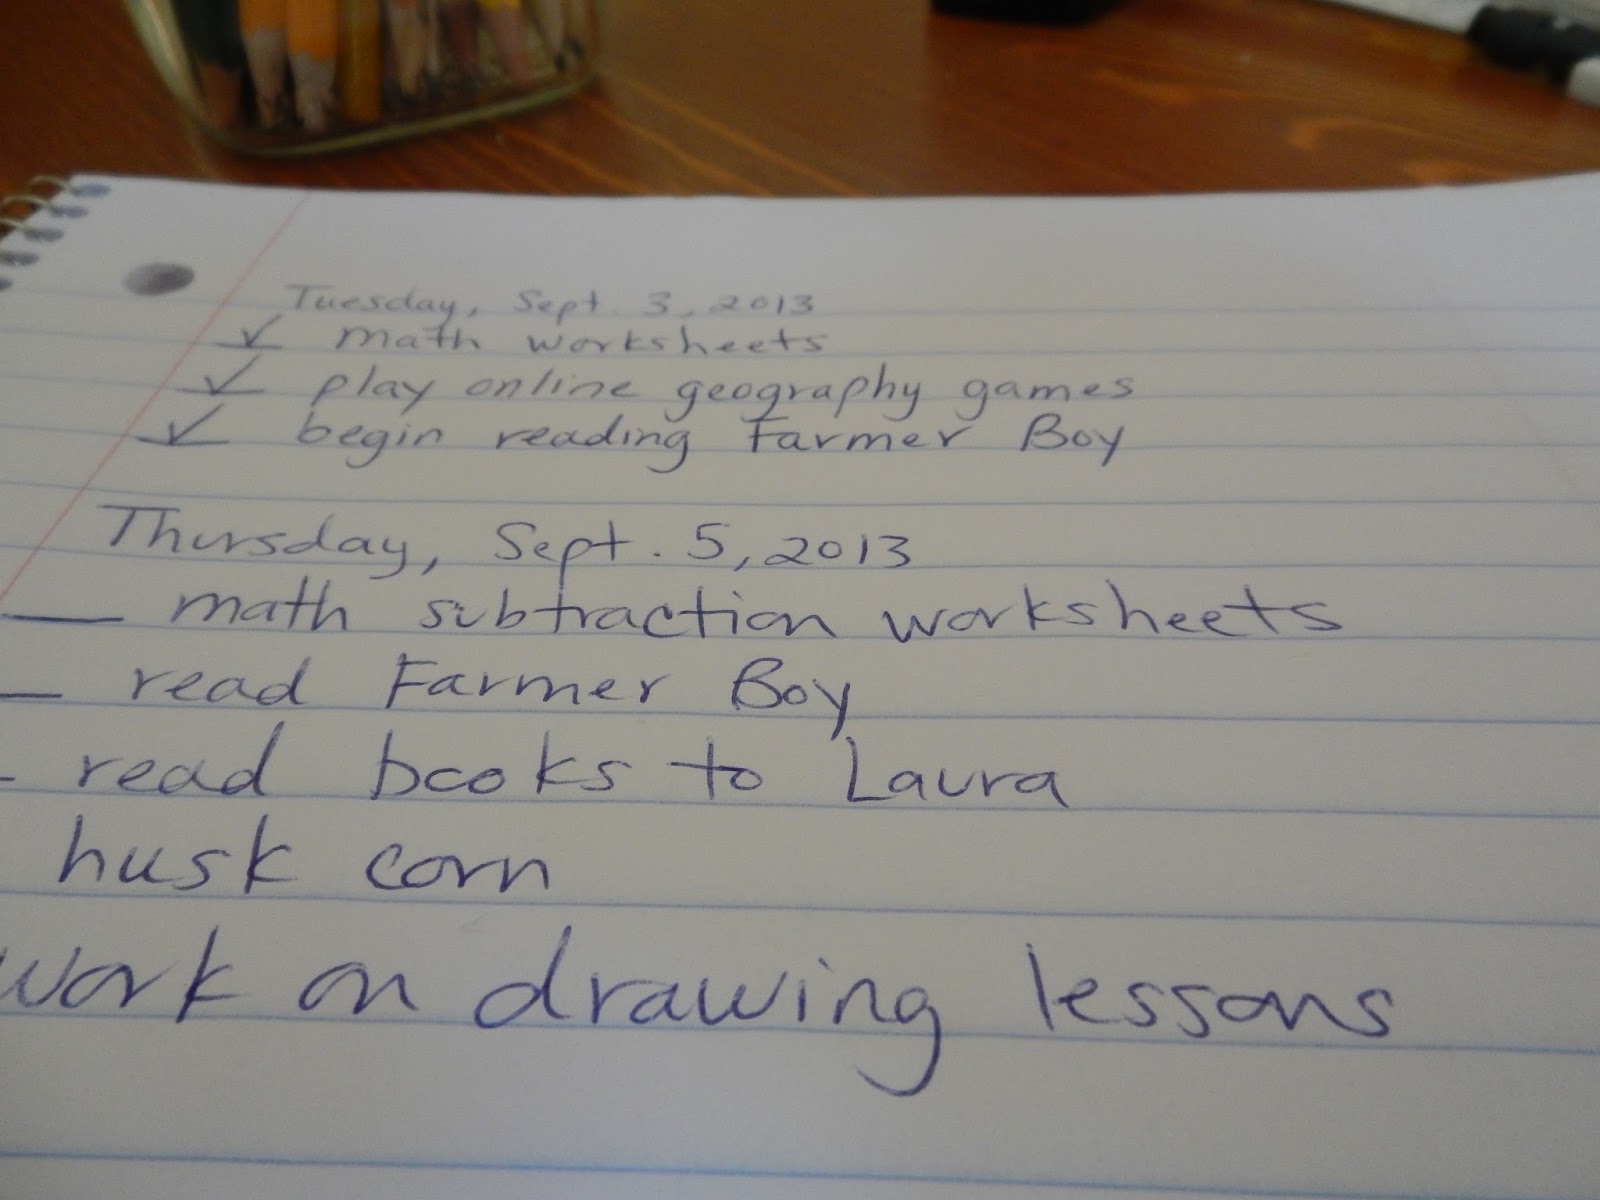 Tuesday, Sept. 3, 2013
✓ math worksheets
✓ play online geography games
✓ begin reading Farmer Boy
Thursday, Sept. 5, 2013
__ math subtraction worksheets
__ read Farmer Boy
_ read books to Laura
husk corn
work on drawing lessons